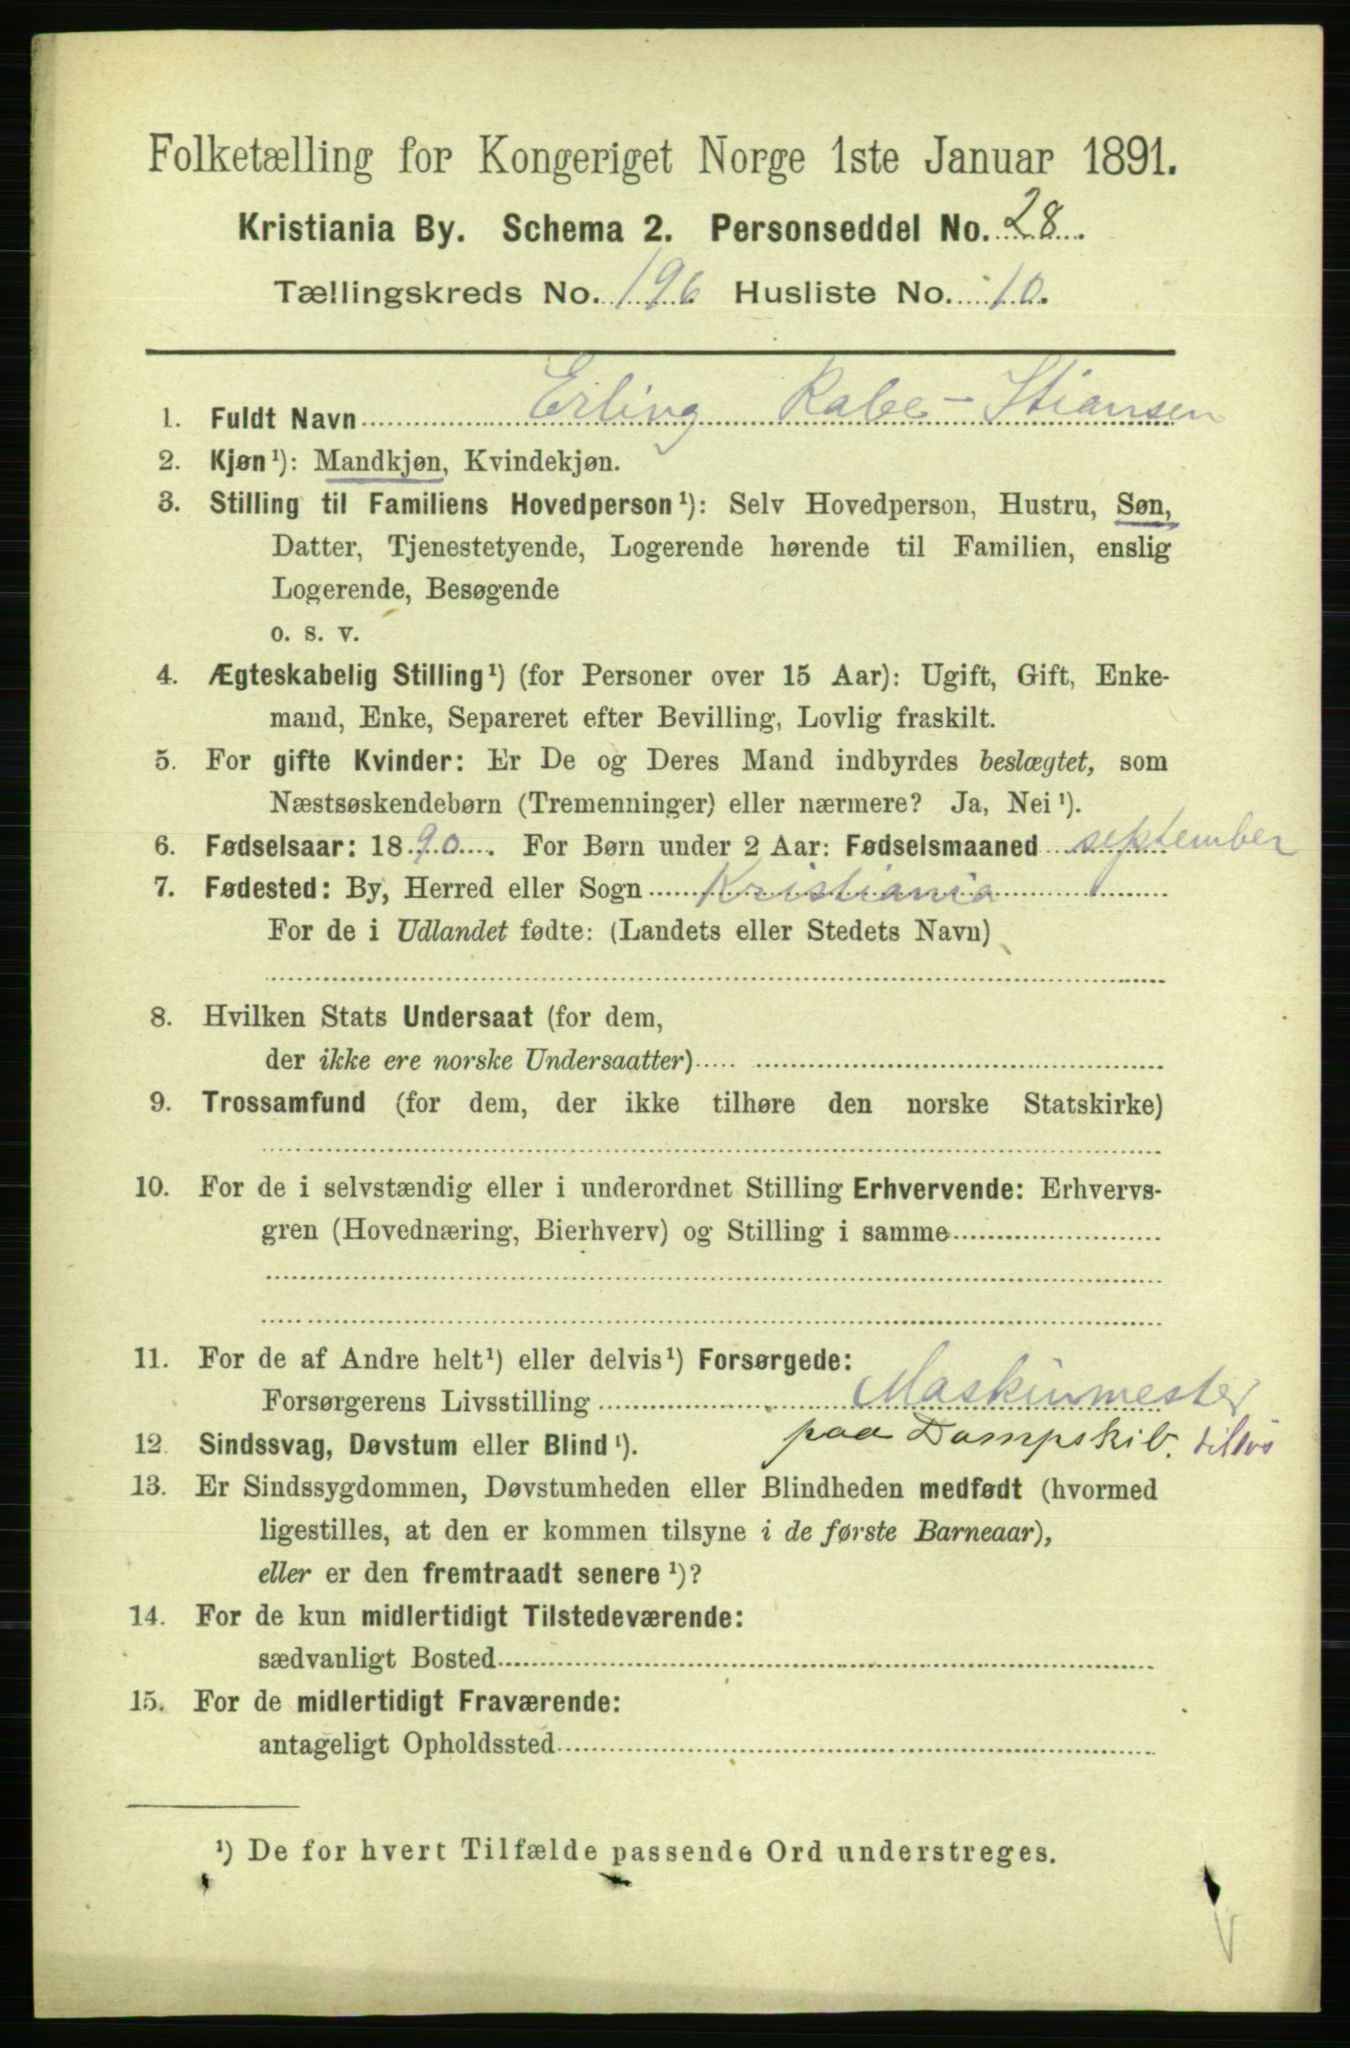 Folketælling for Kongeriget Norge 1ste Januar 1891.
Kristiania By. Schema 2. Personseddel No. 28.
Tællingskreds No. 196 Husliste No. 10.
1. Fuldt Navn Erling Rabe-Stiansen
2. Kjøn¹): Mandkjøn, Kvindekjøn.
3. Stilling til Familiens Hovedperson¹): Selv Hovedperson, Hustru, Søn,
Datter, Tjenestetyende, Logerende hørende til Familien, enslig
Logerende, Besøgende
o. s. v.
4. Ægteskabelig Stilling¹) (for Personer over 15 Aar): Ugift, Gift, Enke-
mand, Enke, Separeret efter Bevilling, Lovlig fraskilt.
5. For gifte Kvinder: Er De og Deres Mand indbyrdes beslægtet, som
Næstsøskendebørn (Tremenninger) eller nærmere? Ja, Nei¹).
6. Fødselsaar: 1890. For Børn under 2 Aar: Fødselsmaaned september
7. Fødested: By, Herred eller Sogn Kristiania
For de i Udlandet fødte: (Landets eller Stedets Navn)
8. Hvilken Stats Undersaat (for dem,
der ikke ere norske Undersaatter)
9. Trossamfund (for dem, der ikke tilhøre den norske Statskirke)
10. For de i selvstændig eller i underordnet Stilling Erhvervende: Erhvervs-
gren (Hovednæring, Bierhverv) og Stilling i samme
11. For de af Andre helt¹) eller delvis¹) Forsørgede:
Forsørgerens Livsstilling Maskinmester
paa Dampskib.
12. Sindssvag, Døvstum eller Blind¹).
13. Er Sindssygdommen, Døvstumheden eller Blindheden medfødt (hvormed
ligestilles, at den er kommen tilsyne i de første Barneaar),
eller er den fremtraadt senere¹)?
14. For de kun midlertidigt Tilstedeværende:
sædvanligt Bosted
15. For de midlertidigt Fraværende:
antageligt Opholdssted
¹) De for hvert Tilfælde passende Ord understreges.